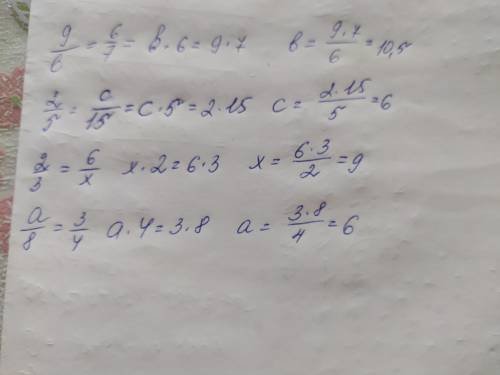 9/в = 6/7 = в · 6 = 9 · 7 в = 9 · 7/6 = 10,5
2/5 = с/15 = с · 5 = 2 · 15 с = 2 · 15/5 = 6
2/3 = 6/х х · 2 = 6 · 3 х = 6 · 3/2 = 9
а/8 = 3/4 а · 4 = 3 · 8 а = 3 · 8/4 = 6